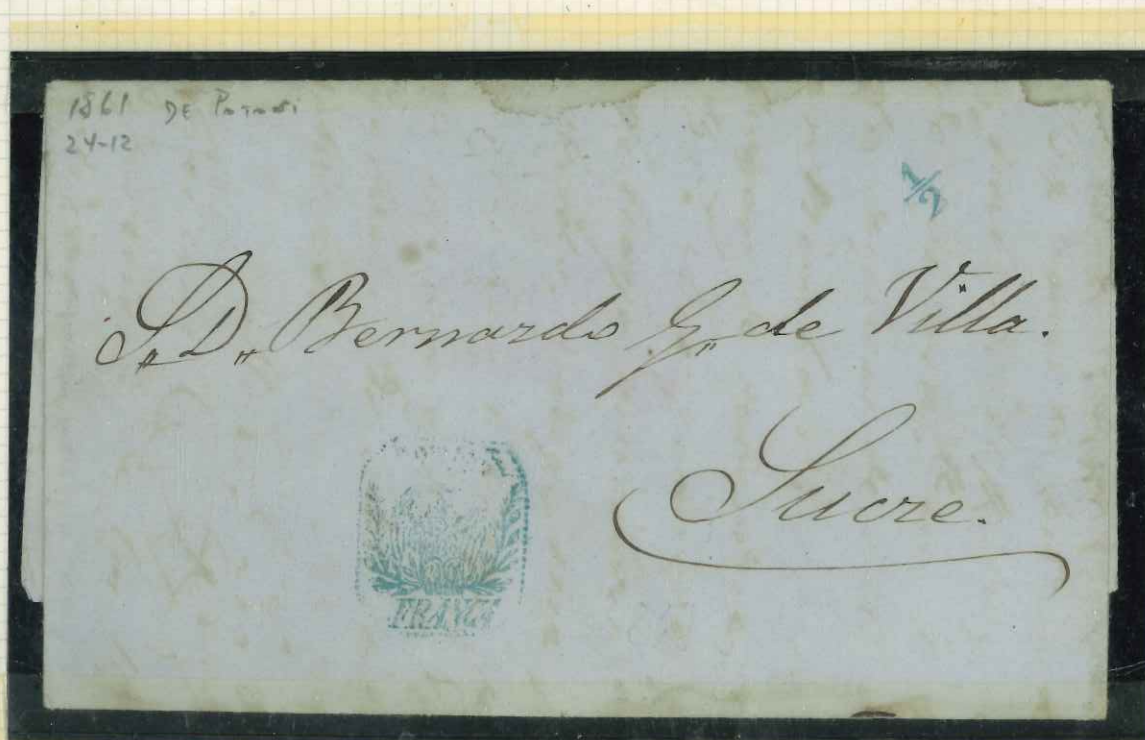 1861 DE Potosi
24-12
1/2
S,, D,, Bernardo G,, de Villa.
Sucre.
FRANCA